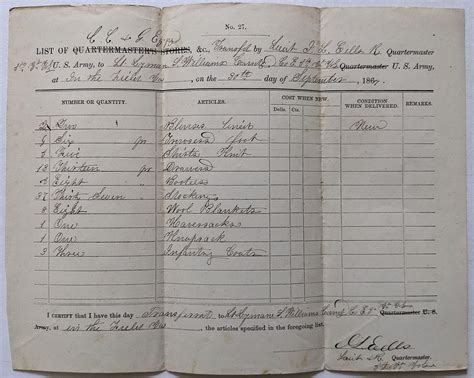 No. 27.
C. C. & G. E.
LIST OF QUARTERMASTER'S STORES, &c., Transfd by Lieut F. L. Eells R. Quartermaster
U. S. Army, to Lt. Lyman S. Williams Comd'g Co E Quartermaster U. S. Army,
at In the Field Va, on the 30th day of September, 186
NUMBER OR QUANTITY. ARTICLES. COST WHEN NEW. CONDITION WHEN DELIVERED. REMARKS.
Dolls. Cents.
2 Two Blouses lined New
6 Six pr Trousers foot
5 Five Shirts Knit
13 Thirteen pr Drawers
8 Eight " Bootees
37 Thirty Seven " Stockings
8 Eight Wool Blankets
1 One Haversacks
1 One Knapsack
3 Three Infantry Coats
I CERTIFY that I have this day Transferred to Lt Lyman S. Williams Comdg Co E Quartermaster U. S.
Army, at in the Field Va, the articles specified in the foregoing list.
Eells
Lieut & R. Quartermaster.